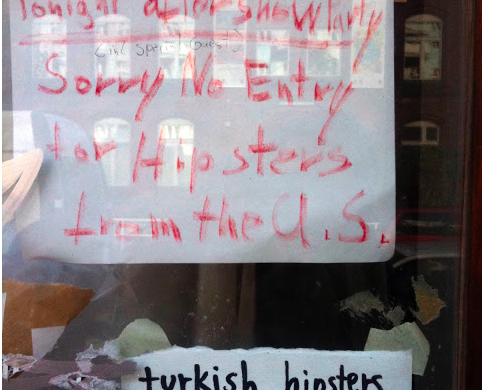 Tonight aftershowParty
(incl Special Guest)
Sorry No Entry
for Hipsters
from the U.S.
turkish hipsters